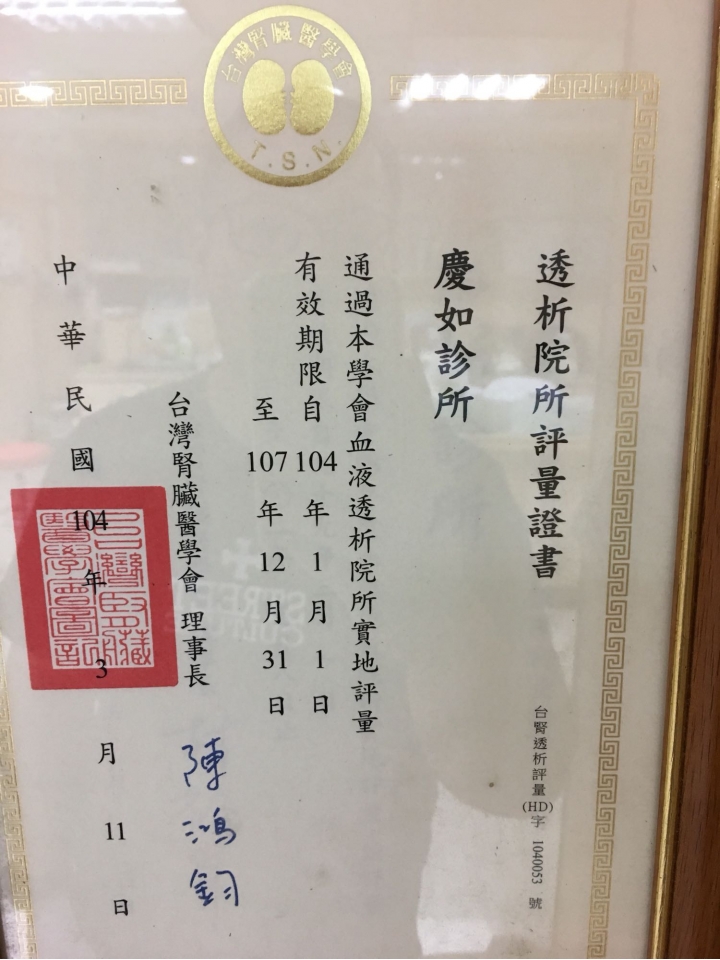 台灣腎臟醫學會
T.S.N.
透析院所評量證書
台腎透析評量(HD)字 1040053 號
慶如診所
通過本學會血液透析院所實地評量
有效期限自104年1月1日
至107年12月31日
台灣腎臟醫學會 理事長 陳鴻鈞
中華民國104年3月11日
台灣腎臟醫學會圖記